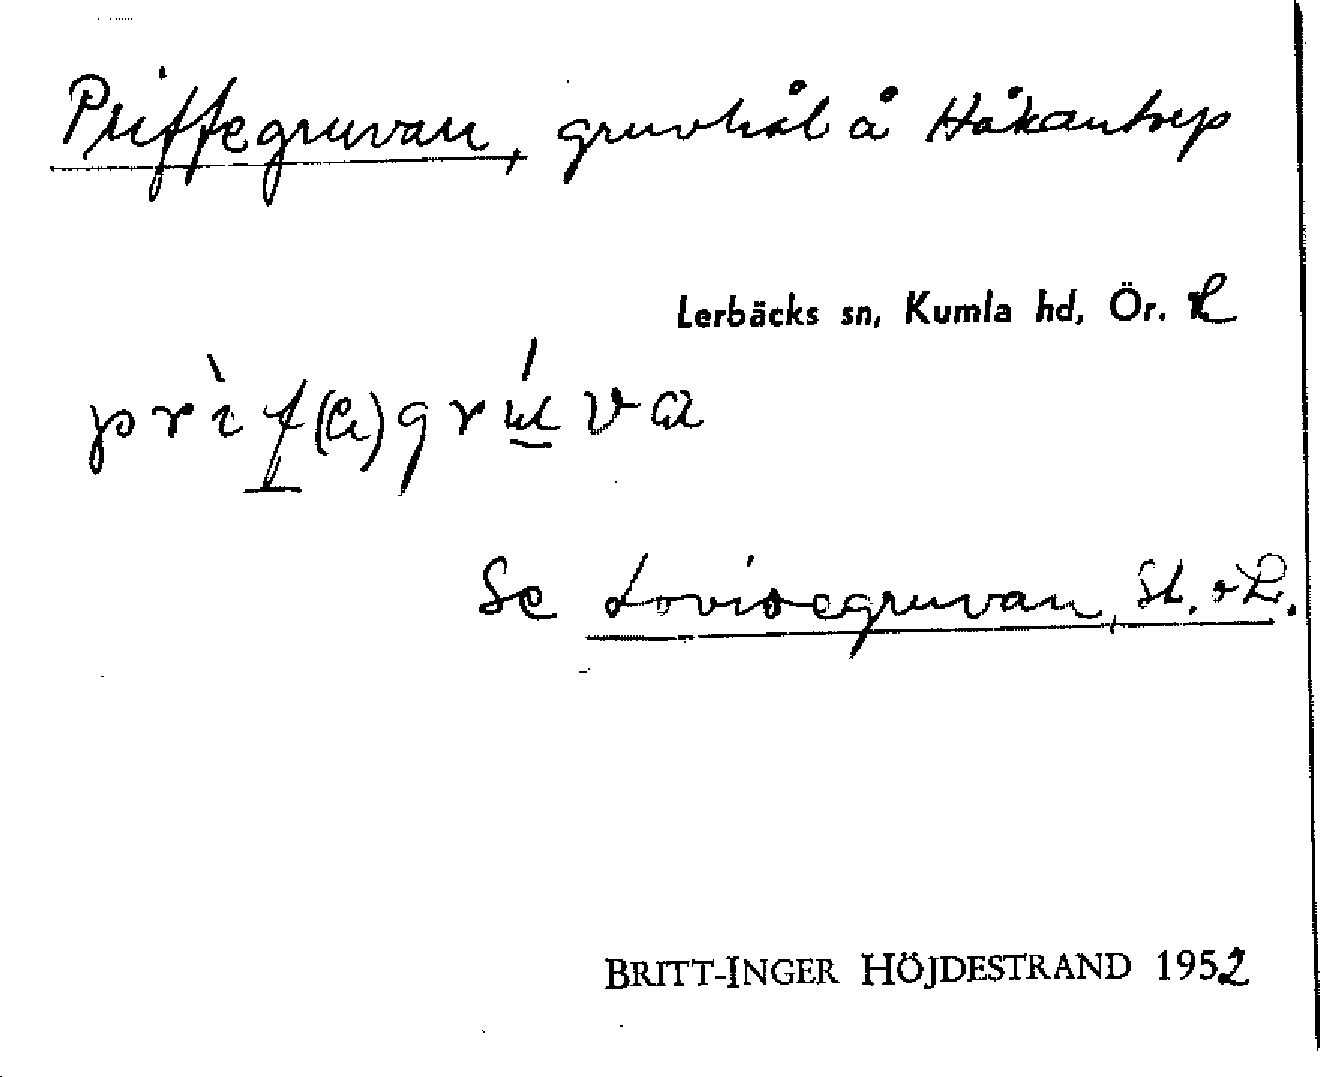 Priffegruvan, gruvhål å Håkantorp
Lerbäcks sn, Kumla hd, Ör. l
prìf(e)grúva
Se Lovisegruvan, St. o L.
BRITT-INGER HÖJDESTRAND 1952